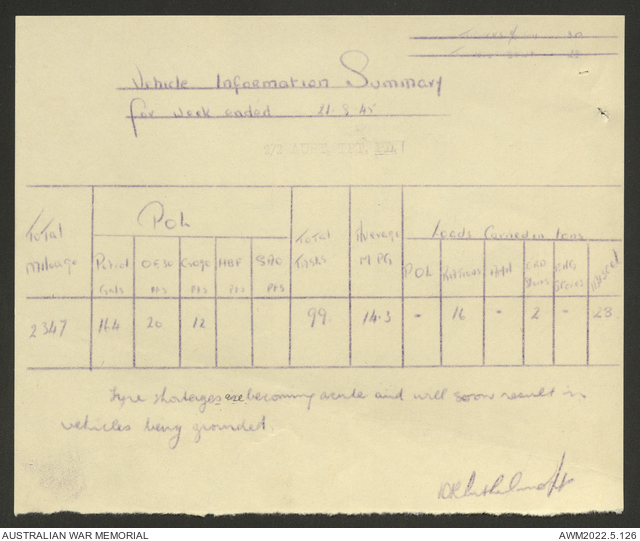 Vehicle Information Summary
for week ended 21.8.45
Total Mileage
POL
Total Tasks
Average M.P.G
Loads Carried in tons
Petrol Galls
OE50 Pts
C600 Pts
HBF Pts
SAO Pts
POL
Rations
Amn
ORD Stores
ENG Stores
2347
164
20
12
99
14.3
-
16
-
2
-
23
Tyre shortages are becoming acute and will soon result in
vehicles being grounded.
AUSTRALIAN WAR MEMORIAL
AWM2022.5.126